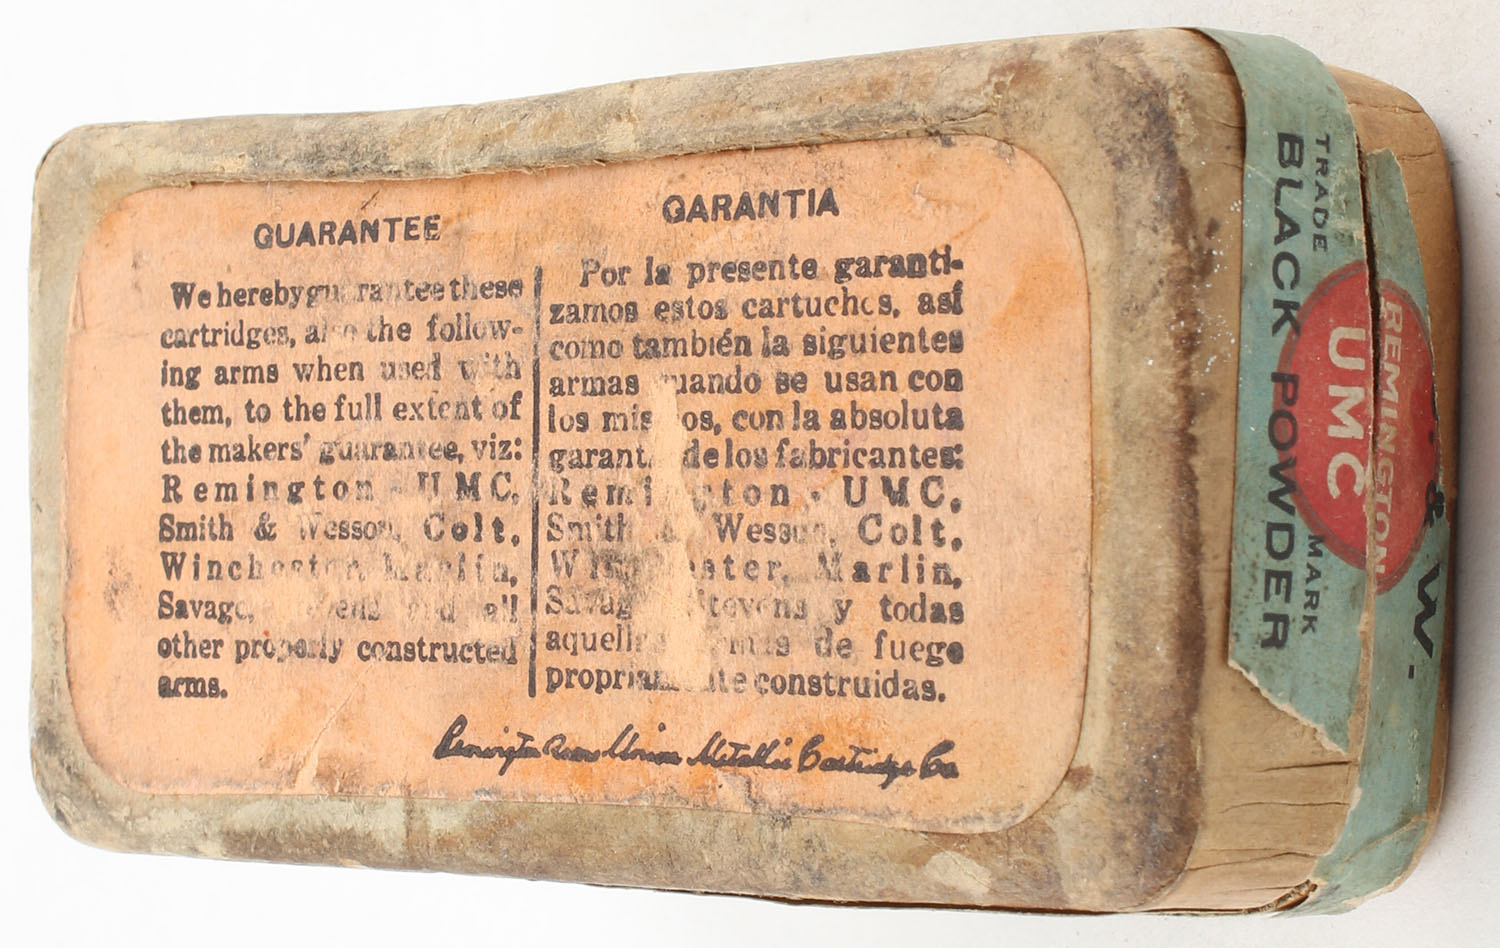 GUARANTEE
We hereby guarantee these
cartridges, also the follow-
ing arms when used with
them, to the full extent of
the makers' guarantee, viz:
Remington - UMC,
Smith & Wesson, Colt,
Winchester, Marlin,
Savage, and all
other properly constructed
arms.
GARANTIA
Por la presente garanti-
zamos estos cartuches, así
como también la siguientes
armas cuando se usan con
los mismos, con la absoluta
garant. de los fabricantes:
Remington - UMC,
Smith & Wesson, Colt,
Winchester, Marlin,
Savage Stevens y todas
aquellas armas de fuego
propriamente construidas.
Remington Arms Union Metallic Cartridge Co
TRADE MARK
BLACK POWDER
REMINGTON
UMC
& W.